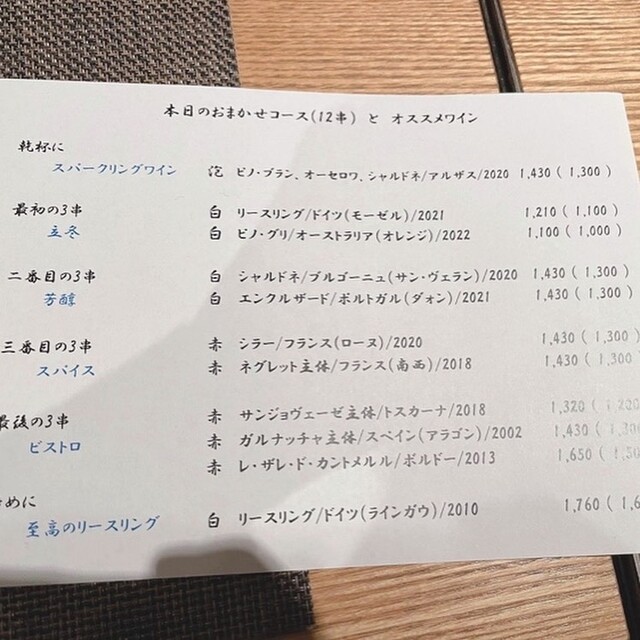 本日のおまかせコース(12串) と オススメワイン
乾杯に
スパークリングワイン 泡 ピノ・ブラン、オーセロワ、シャルドネ/アルザス/2020 1,430 ( 1,300 )
最初の3串 白 リースリング/ドイツ(モーゼル)/2021 1,210 ( 1,100 )
立冬 白 ピノ・グリ/オーストラリア(オレンジ)/2022 1,100 ( 1,000 )
二番目の3串 白 シャルドネ/ブルゴーニュ(サン・ヴェラン)/2020 1,430 ( 1,300 )
芳醇 白 エンクルザード/ポルトガル(ダォン)/2021 1,430 ( 1,300 )
三番目の3串 赤 シラー/フランス(ローヌ)/2020 1,430 ( 1,300 )
スパイス 赤 ネグレット主体/フランス(南西)/2018 1,430 ( 1,300
最後の3串 赤 サンジョヴェーゼ主体/トスカーナ/2018 1,320 ( 1,200
ビストロ 赤 ガルナッチャ主体/スペイン(アラゴン)/2002 1,430 ( 1,300
赤 レ・ザレ・ド・カントメルル/ボルドー/2013 1,650 (
めに
至高のリースリング 白 リースリング/ドイツ(ラインガウ)/2010 1,760 ( 1,6